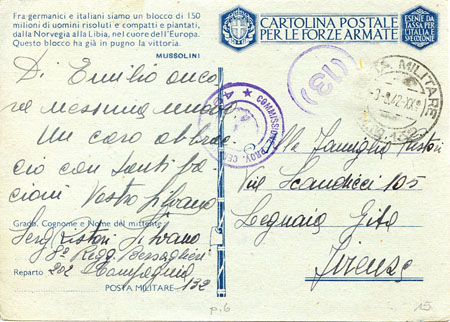 Fra germanici e italiani siamo un blocco di 150
milioni di uomini risoluti e compatti e piantati,
dalla Norvegia alla Libia, nel cuore dell'Europa.
Questo blocco ha già in pugno la vittoria.
MUSSOLINI
CARTOLINA POSTALE
PER LE FORZE ARMATE
ESENTE DA
TASSA PER
L'ITALIA E
SPEDIZIONE
Di Emilio anco
ra nessuna
Un caro abbrac
cio con tanti ba
cioni Vostro Silvano
Grado, Cognome e Nome del mittente
Serg. Ristori Silvano
8º Regg. Bersaglieri
Reparto 202 Compagnia
POSTA MILITARE 132
COMMISSIONE PROV. CENS
MILITARE
Alla Famiglia Ristori
Via Scandicci 105
Legnaia Gita
Firenze
p.6
15